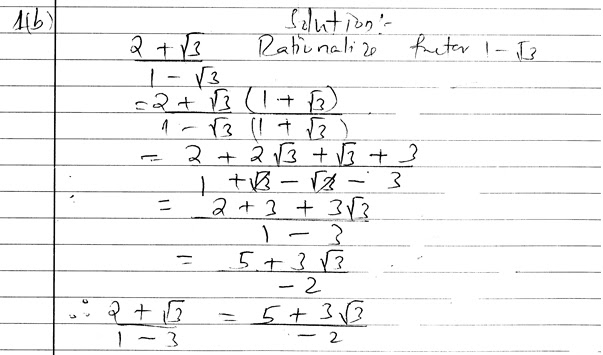 1(b) Solution:-
2 + √3 Rationalize factor 1 - √3
1 - √3
= 2 + √3 (1 + √3)
1 - √3 (1 + √3)
= 2 + 2√3 + √3 + 3
1 + √3 - √3 - 3
= 2 + 3 + 3√3
1 - 3
= 5 + 3√3
-2
∴ 2 + √3 = 5 + 3√3
1 - 3 -2